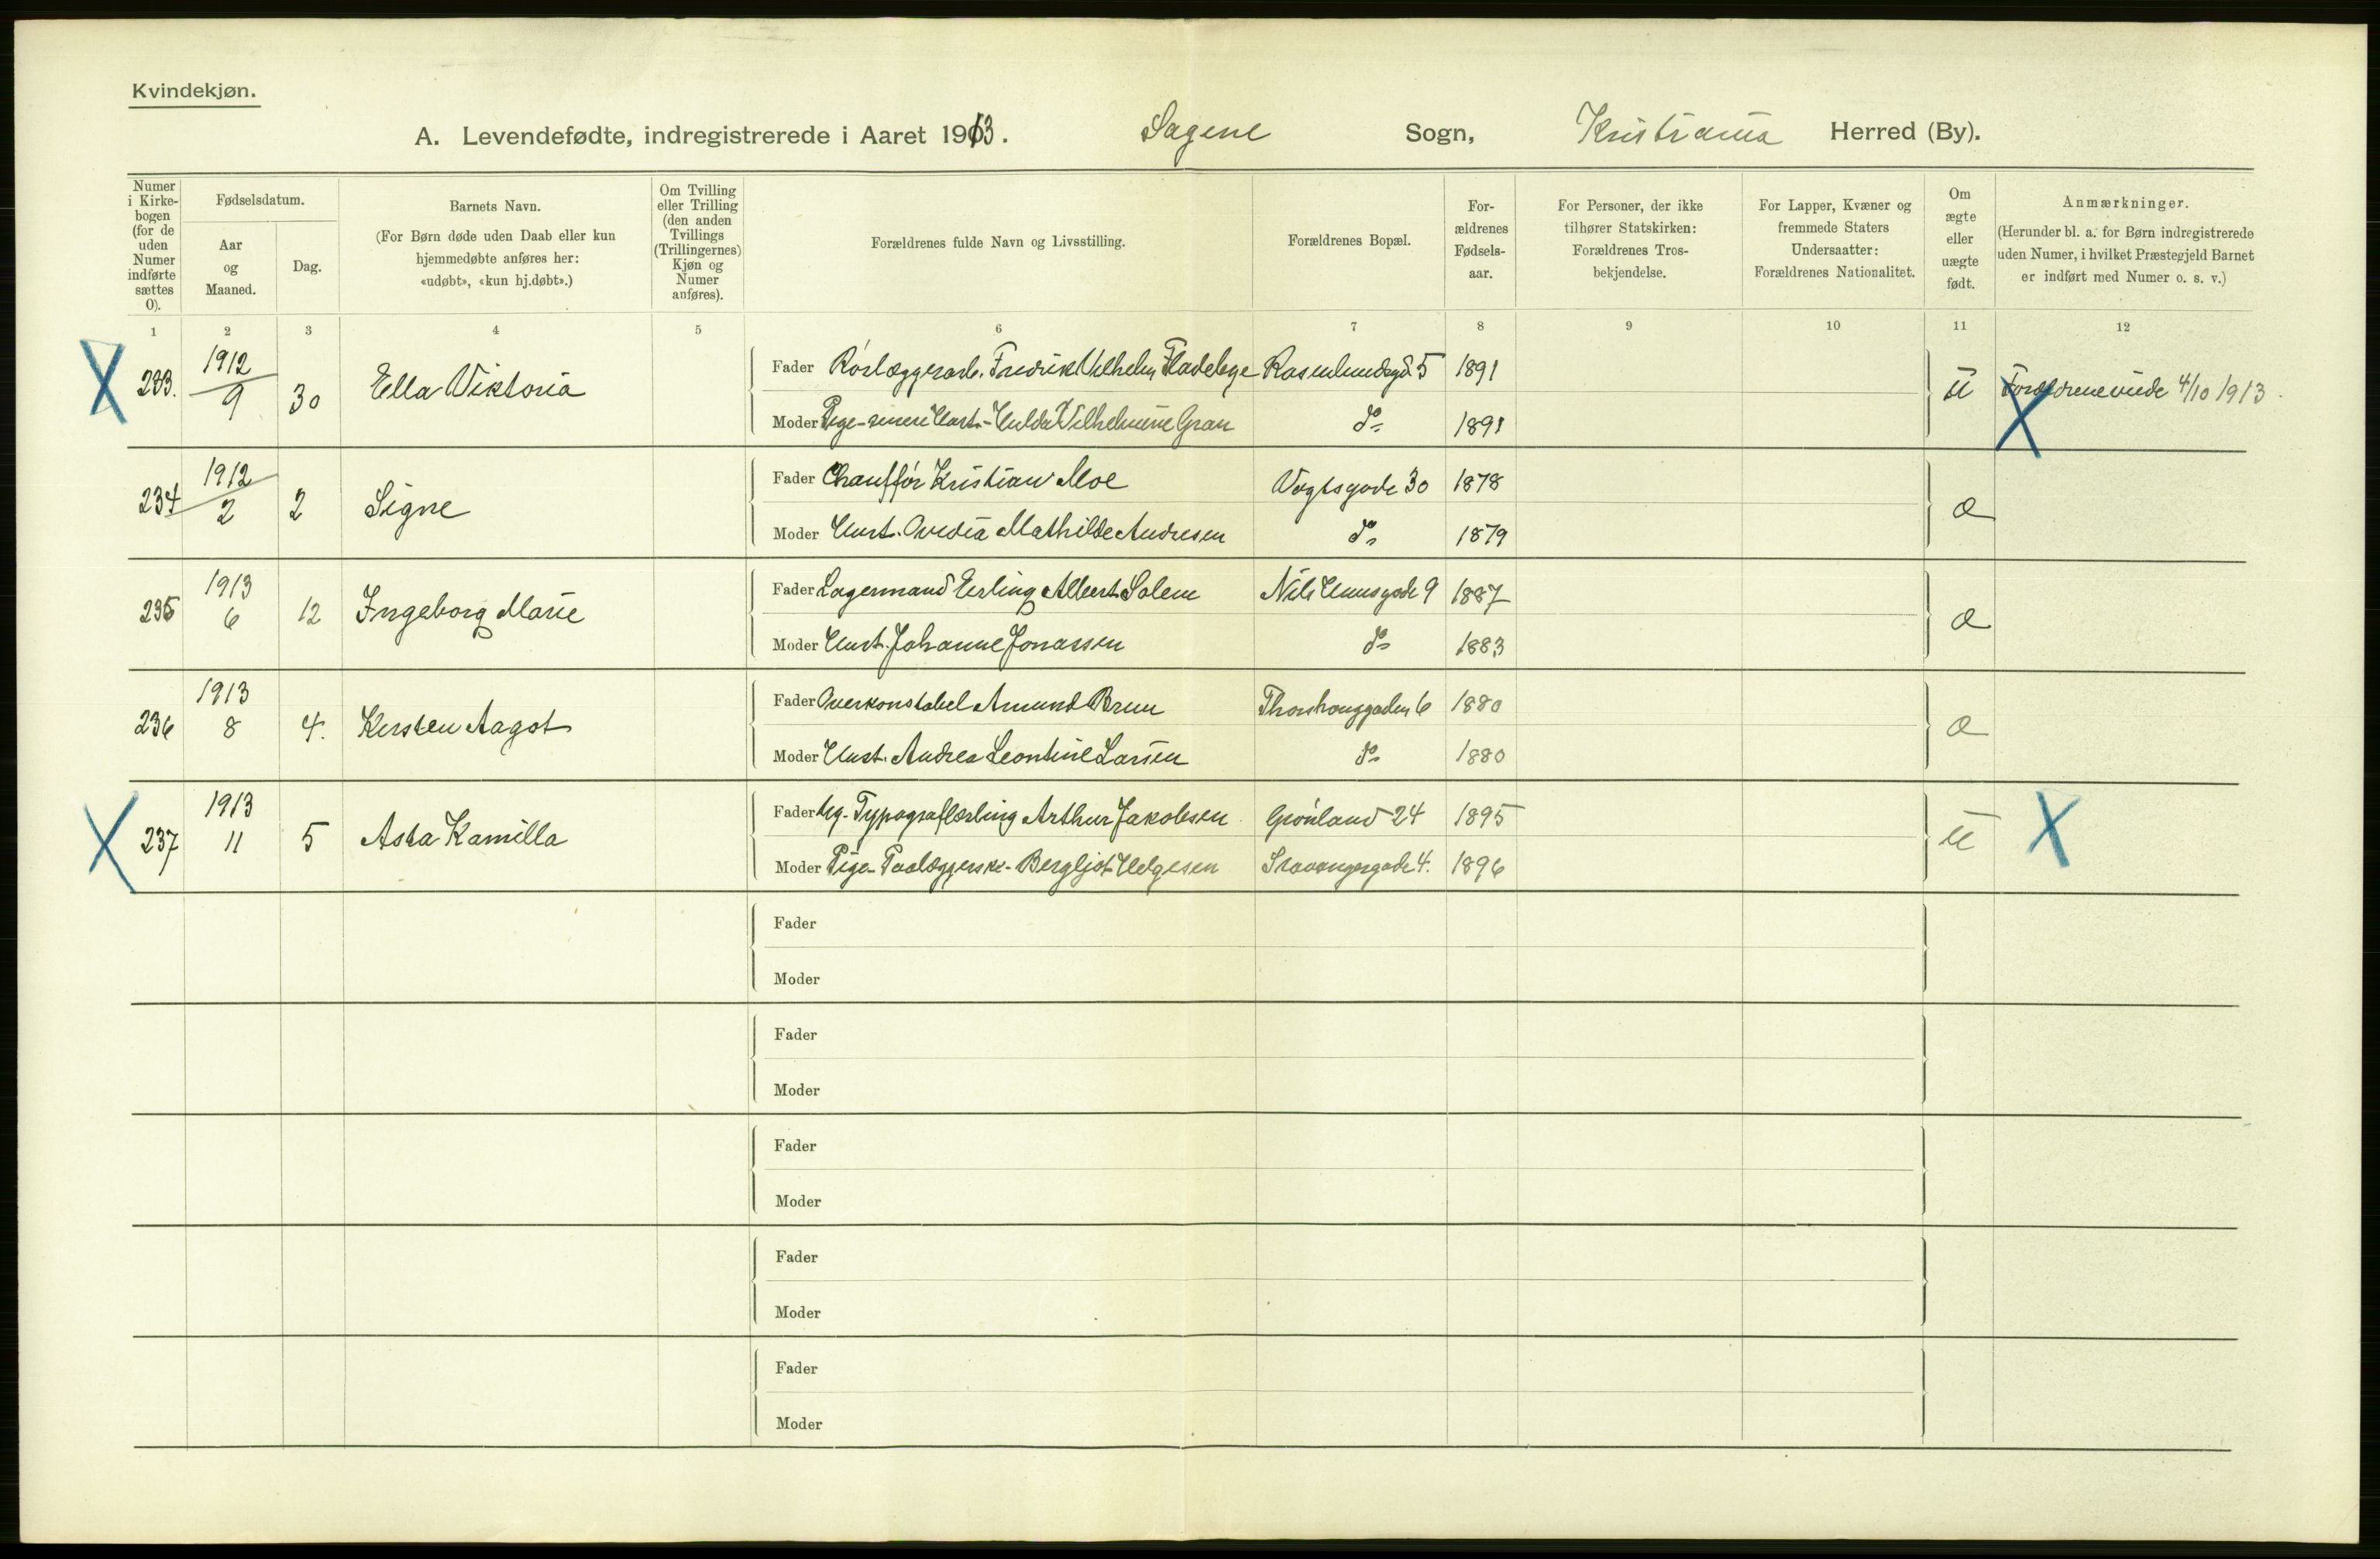 Kvindekjøn.
A. Levendefødte, indregistrerede i Aaret 1913. Sagene Sogn, Kristiania Herred (By).
Numer i Kirke-bogen (for de uden Numer indførte sættes O).
Fødselsdatum.
Aar og Maaned.
Dag.
Barnets Navn.
(For Børn døde uden Daab eller kun hjemmedøbte anføres her: «udøbt», «kun hj.døbt».)
Om Tvilling eller Trilling (den anden Tvillings (Trillingernes) Kjøn og Numer anføres).
Forældrenes fulde Navn og Livsstilling.
Forældrenes Bopæl.
For-ældrenes Fødsels-aar.
For Personer, der ikke tilhører Statskirken: Forældrenes Tros-bekjendelse.
For Lapper, Kvæner og fremmede Staters Undersaatter: Forældrenes Nationalitet.
Om ægte eller uægte født.
Anmærkninger.
(Herunder bl. a. for Børn indregistrerede uden Numer, i hvilket Præstegjeld Barnet er indført med Numer o. s. v.)
1 2 3 4 5 6 7 8 9 10 11 12
X 233. 1912 9 30 Ella Viktoria Fader Rørlæggerarb. Fredrik Vilhelm Fladeby Rosenlundgd. 5 1891 u Forældrene viede 4/10 1913. X
Moder Pige - senere Hust. - Hulda Vilhelmine Gran do 1891
234 1912 2 2 Signe Fader Chauffør Kristian Moe Vogtsgade 30 1878 æ
Moder Hust. Ovidia Mathilde Andresen do 1879
235 1913 6 12 Ingeborg Marie Fader Lagermand Erling Albert Solem Nils Huusgade 9 1887 æ
Moder Hust. Johanne Jonassen do 1883
236 1913 8 4. Kirsten Aagot Fader Overkonstabel Amund Brun Thorshauggaden 6 1880 æ
Moder Hust. Andrea Leontine Larsen do 1880
X 237 1913 11 5 Asta Kamilla Fader Ug. Typograflærling Arthur Jakobsen Grønland 24 1895 u X
Moder Pige - Paalæggerske - Bergljot Helgesen Stavangergade 4. 1896
Fader
Moder
Fader
Moder
Fader
Moder
Fader
Moder
Fader
Moder